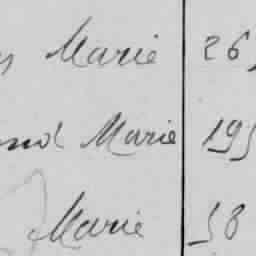 Marie 26
Marie 195
Marie 58